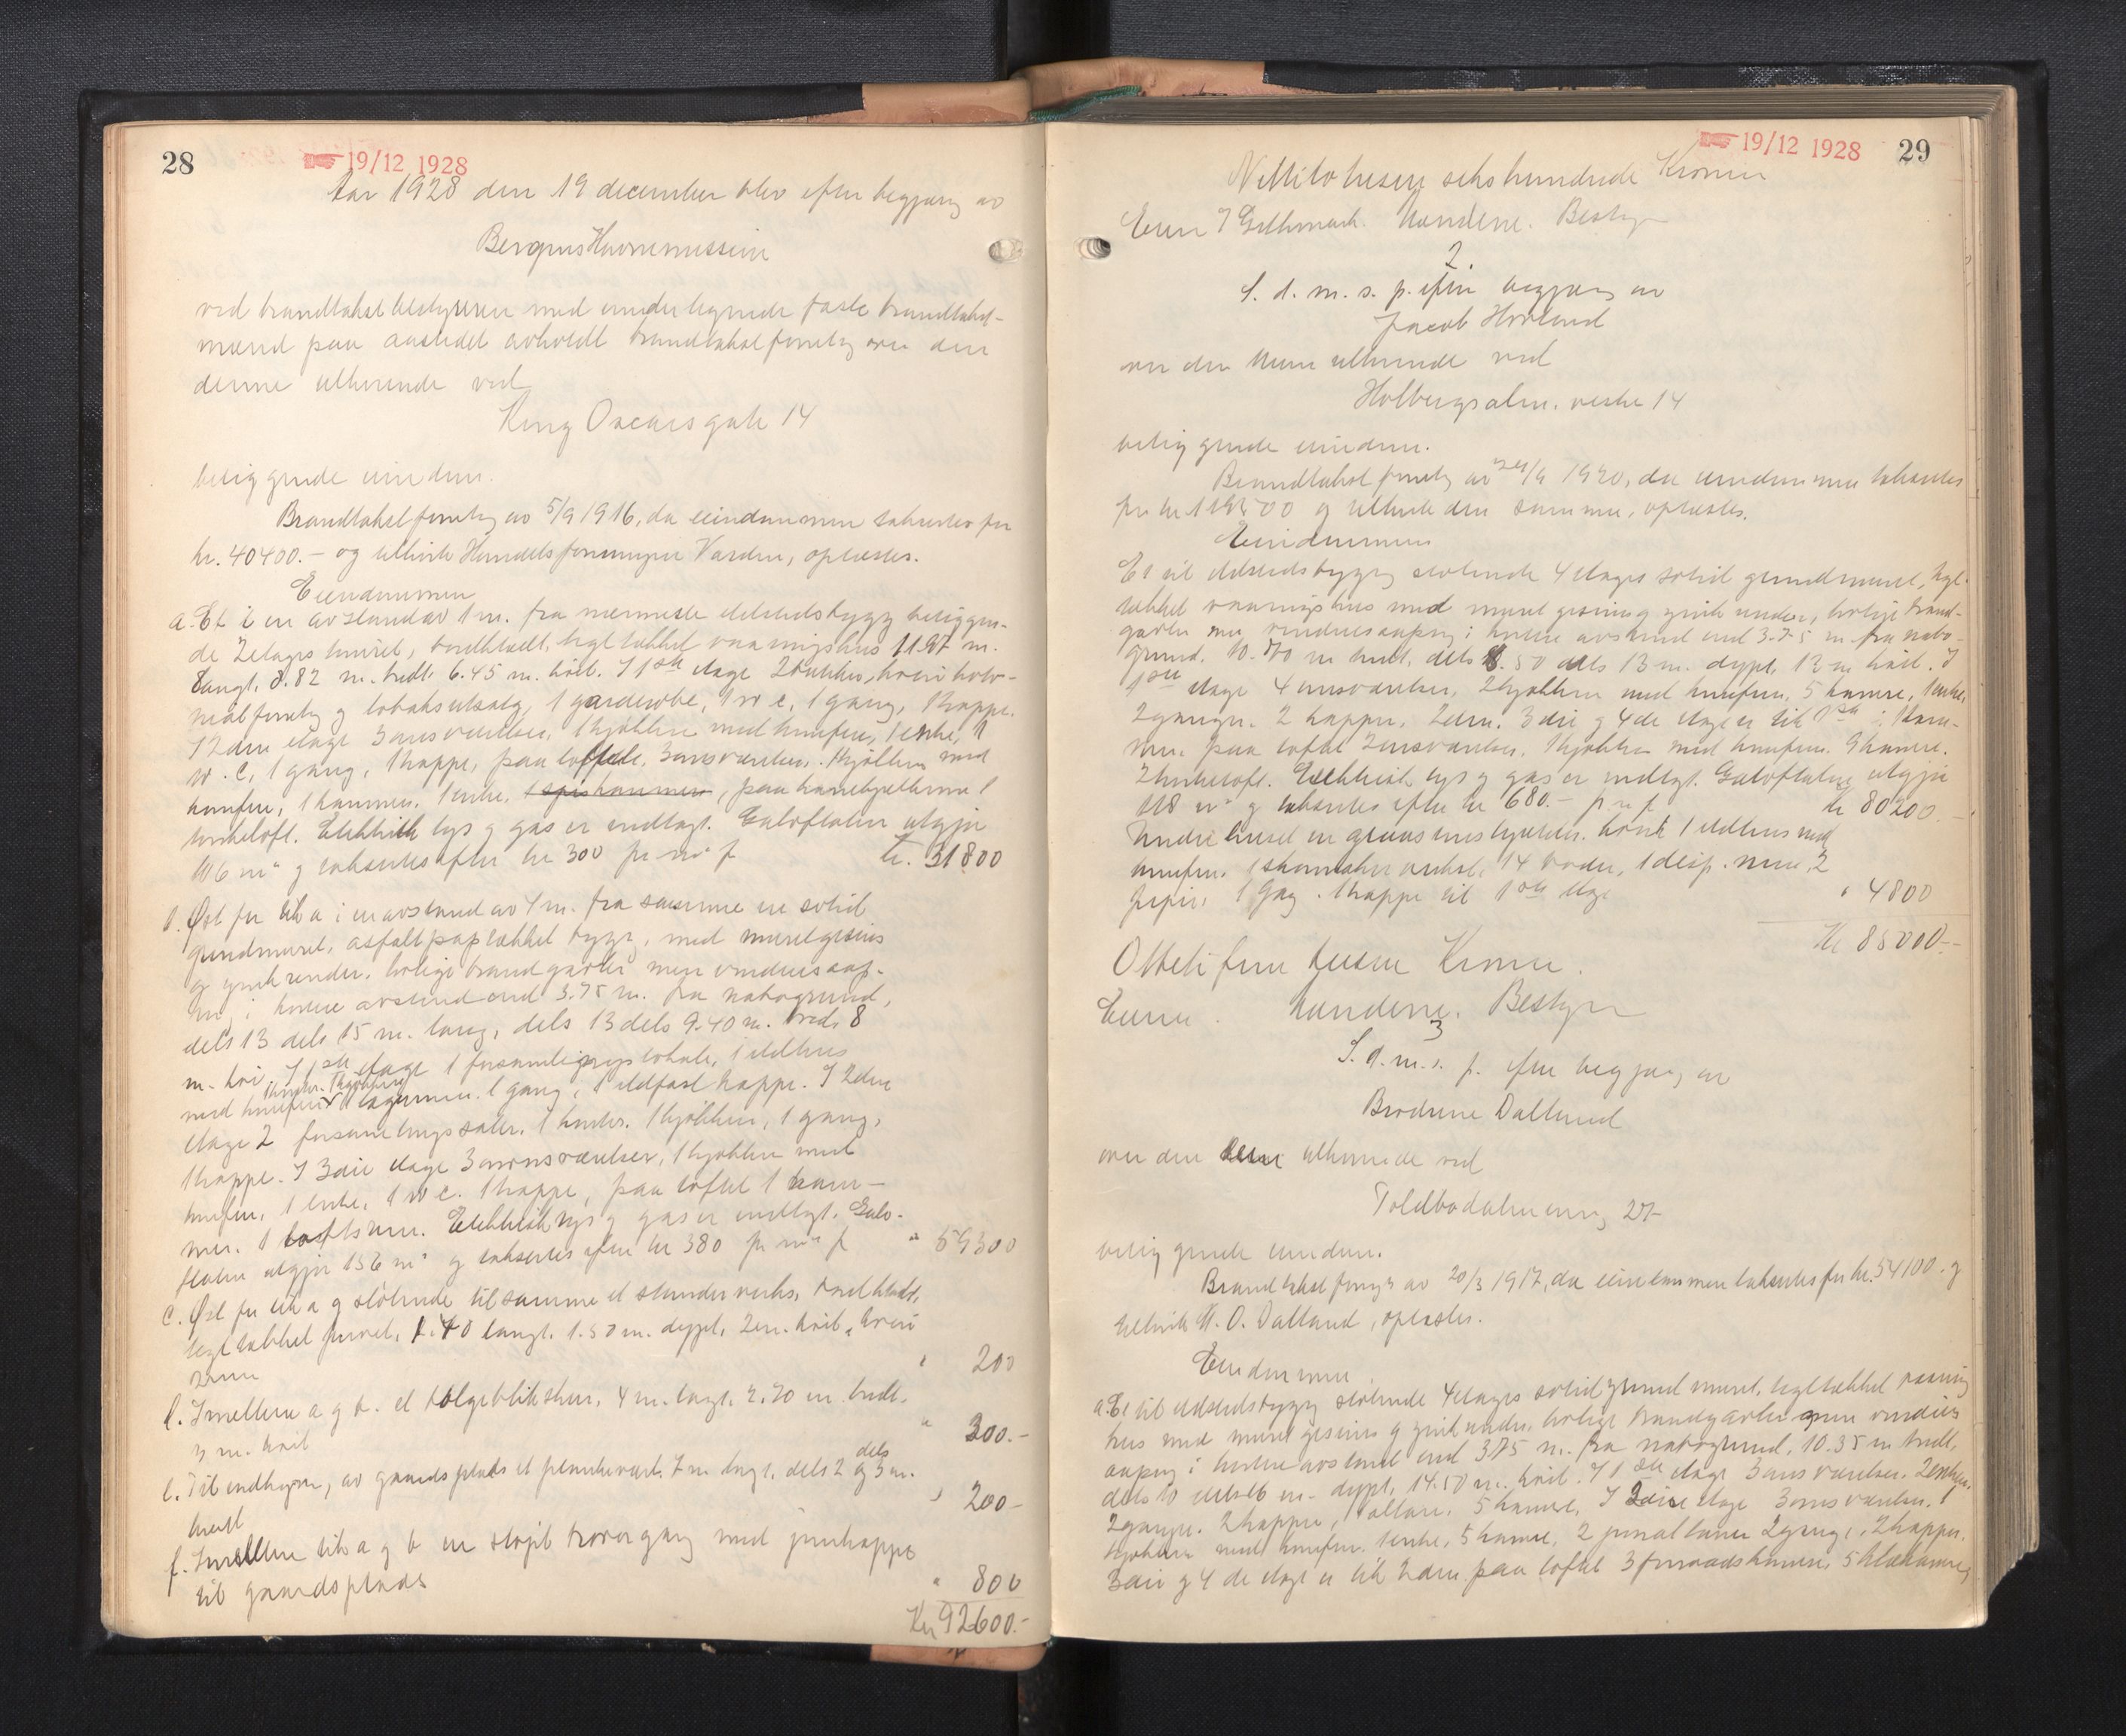 28
19/12 1928
Aar 1928 den 19 december blev efter begjæring av
Bergens Havremission
ved brandtakstbestyreren med undertegnede faste brandtakst-
mænd paa aastedet avholdt brandtakstforretng over den
denne tilhørende ved
Kong Oscars gate 14
beliggende eiendom.
Brandtakstforretng av 5/9 1916, da eiendommen takseredes for
kr. 40400.- og tilhørte Handelsforeningen Varden, oplæstes.
Eiendommen
a. Et i en avstand av 1 m. fra nærmeste ildstedsbygg beliggen-
de 2 etages muret, bordklædt, tegltækket vaaningshus 11.97 m.
langt. 8.82 m. bredt. 6.45 m. høit. I 1ste etage 2 butikker, hvori kolo-
nialforretng og tobaksutsalg, 1 garderobe, 1 w c, 1 gang, 1 trappe.
I 2den etage 3 onsværelser, 1 kjøkken med komfur, 1 entre, 1
w. c, 1 gang, 1 trappe, paa loftet 3 onsværelser. 1 kjøkken med
komfur, 1 kammer. 1 entre. 1 spiskammer, paa hanebjelkerne 1
tørkeloft. Elektrisk lys og gas er indlagt. Gulvflaten utgjør
106 m² og takseres efter kr 300 pr m² f kr. 31800
b. Øst for lit a i en avstand av 4 m. fra samme en solid
grundmuret, asfaltpaptækket bygg, med muret gesims
og zinkrender. lovlige brandgavler men vinduesaap-
ng i kortere avstand end 3.75 m. fra nabogrund,
dels 13 dels 15 m. lang, dels 13 dels 9.40 m. bred. 8
m. høi. I 1ste etage 1 forsamlingslokale, 1 ildhus
med komfur 1 kontor. 1 kjøkken 1 lagerrum. 1 gang, 1 ildfast trappe. I 2den
etage 2 forsamlingssaler. 1 kontor. 1 kjøkken, 1 gang,
1 trappe. I 3die etage 3 onsværelser, 1 kjøkken med
komfur, 1 entre, 1 w c. 1 trappe, paa loftet 1 kam-
mer. 1 loftsrum. Elektrisk lys og gas er indlagt. Gulv-
flaten utgjør 156 m² og takseres efter kr 380 pr m² f " 59300
c. Øst for lit a og støtende til samme et stenderverks, bordklædt,
tegltækket privet, 1.70 langt. 1.50 m. dypt, 2 m. høit, hvori
" 200
d. Imellem a og b. et bølgebliksskur, 4 m. langt. 2.70 m. bredt.
3 m. høit " 300.-
e. Til indhegn av gaardsplads et plankeverk 7 m langt. dels 2 dels og 3 m.
høit " 200-
f. Imellem lit a og b en støpt broovergang med jerntrappe
til gaardsplads " 800
Kr 92600.-
19/12 1928
29
Nittitotusen sekshundrede Kroner
2.
S. d. m. s. p. efter begjæring av
Jacob Hovland
over den ham tilhørende ved
Holbergsalm. vestre 14
beliggende eiendom.
Brandtakst forretng av 24/9 1920, da eiendommen takseredes
og tilhørte den samme, oplæstes.
Eiendommen
Et til ildstedsbygg støtende 4 etages solid grundmuret, tegl-
tækket vaaningshus med muret gesims og zinkrender, lovlige brand-
gavler men vinduesaapng i kortere avstand end 3.75 m. fra nabo-
grund. 10.70 m bredt, dels 8.50 dels 13 m. dypt, 13 m høit. I
1ste etage 4 onsværelser, 2 kjøkken med komfur, 5 kamre, 1 entre,
2 ganger. 2 trapper. 2den. 3die og 4de etage er lik 1ste
paa loftet 2 onsværelser. 1 kjøkken med komfur. 9 kamre.
2 tørkeloft. Elektrisk lys og gas er indlagt. Gulvflaten utgjør
118 m² og takseres efter kr 680.- p m² f kr 80200.-
Under huset en graastens kjelder. hvori 1 ildhus med
komfur. 1 skomakerverksted, 14 boder, 1 disp. rum, 2
1 gang. 1 trappe til 1ste etage " 4800
Kr 85000.-
Ottetifem tusen Kroner.
3
S. d. m. s. p. efter begjæring av
Brødrene Dalland
over den dem tilhørende ved
Toldbodalmenning 27
beliggende eiendom.
Brandtakst forretng av 20/3 1917, da eiendommen takseredes for kr. 54100. og
tilhørte H. O. Dalland, oplæstes.
Eiendommen
a. Et til ildstedsbygg støtende 4 etages solid grundmuret, tegltækket vaanings-
hus med muret gesims og zinkrender, lovlige brandgavler men vindues
aapng i kortere avstand end 3.75 m. fra nabogrund. 10.35 m bredt,
dels 10 m. dypt, 14.50 m. høit. I 1ste etage 3 onsværelser. 2 entreer.
2 ganger. 2 trapper, 5 kamre. I 2den etage 3 onsværelser. 1
kjøkken med komfur. 1 entre, 5 kamre, 2 ganger. 2 trapper.
3die og 4de etage er lik 2den paa loftet 3 forraadskamre, 5